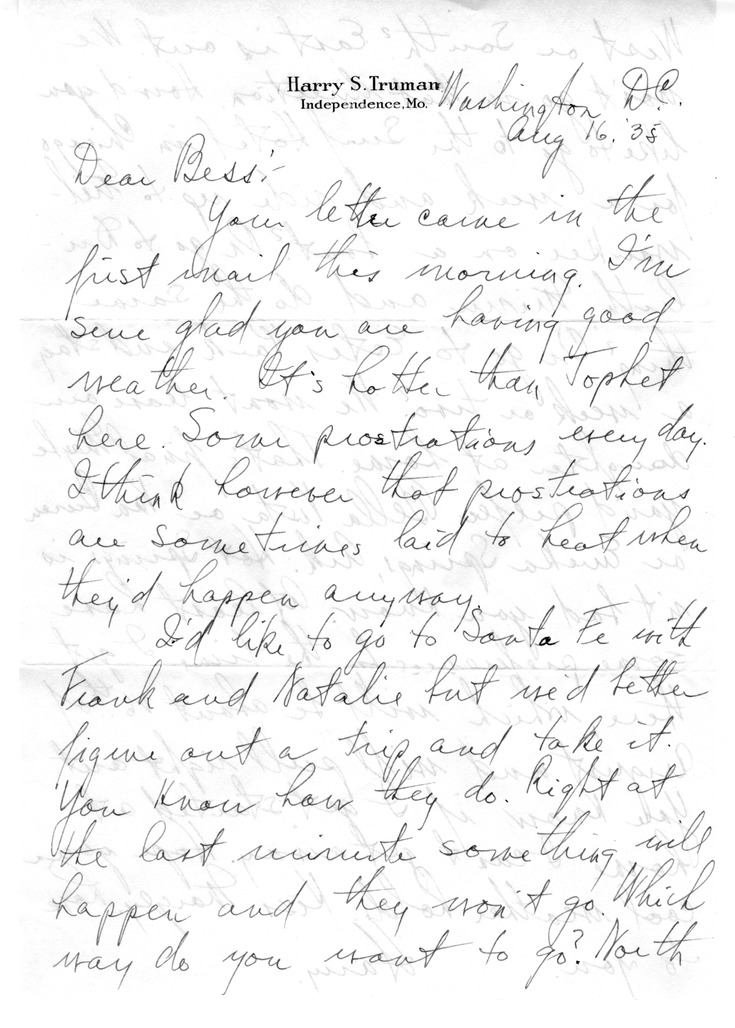 Harry S. Truman
Independence, Mo.
Washington, D.C.
Aug 16, '35
Dear Bess:-
Your letter came in the
first mail this morning. I'm
sure glad you are having good
weather. It's hotter than Tophet
here. Some prostrations every day.
I think however that prostrations
are sometimes laid to heat when
they'd happen anyway.
I'd like to go to Santa Fe with
Frank and Natalie but we'd better
figure out a trip and take it.
You know how they do. Right at
the last minute something will
happen and they won't go. Which
way do you want to go? North